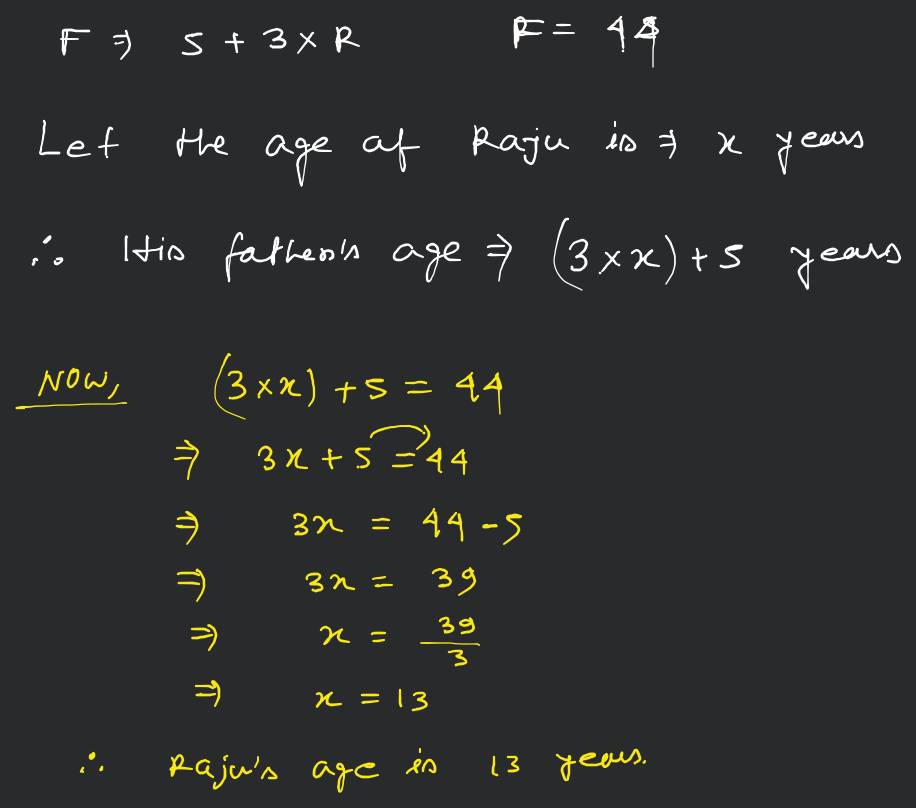 F ⇒ 5 + 3 × R F = 44
Let the age of Raju is ⇒ x years
∴ His father's age ⇒ (3 × x) + 5 years
NOW, (3 × x) + 5 = 44
⇒ 3x + 5 = 44
⇒ 3x = 44 - 5
⇒ 3x = 39
⇒ x = 39/3
⇒ x = 13
∴ Raju's age is 13 years.